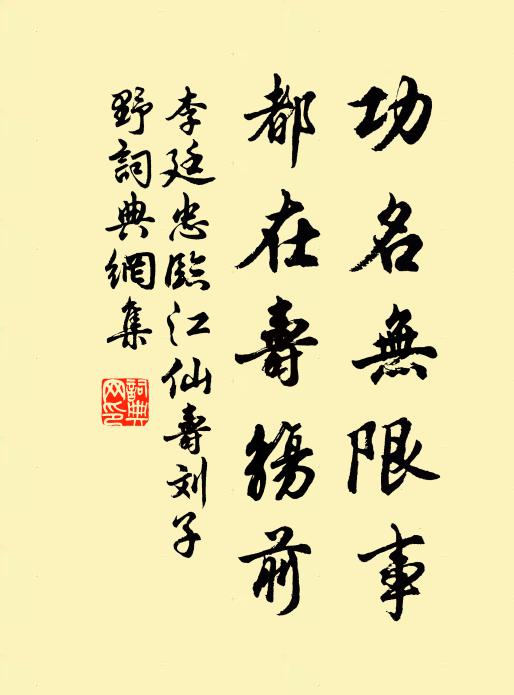 功名無限事
都在壽觴前
李廷忠臨江仙壽刘子
野詞典網集
詞典
网印